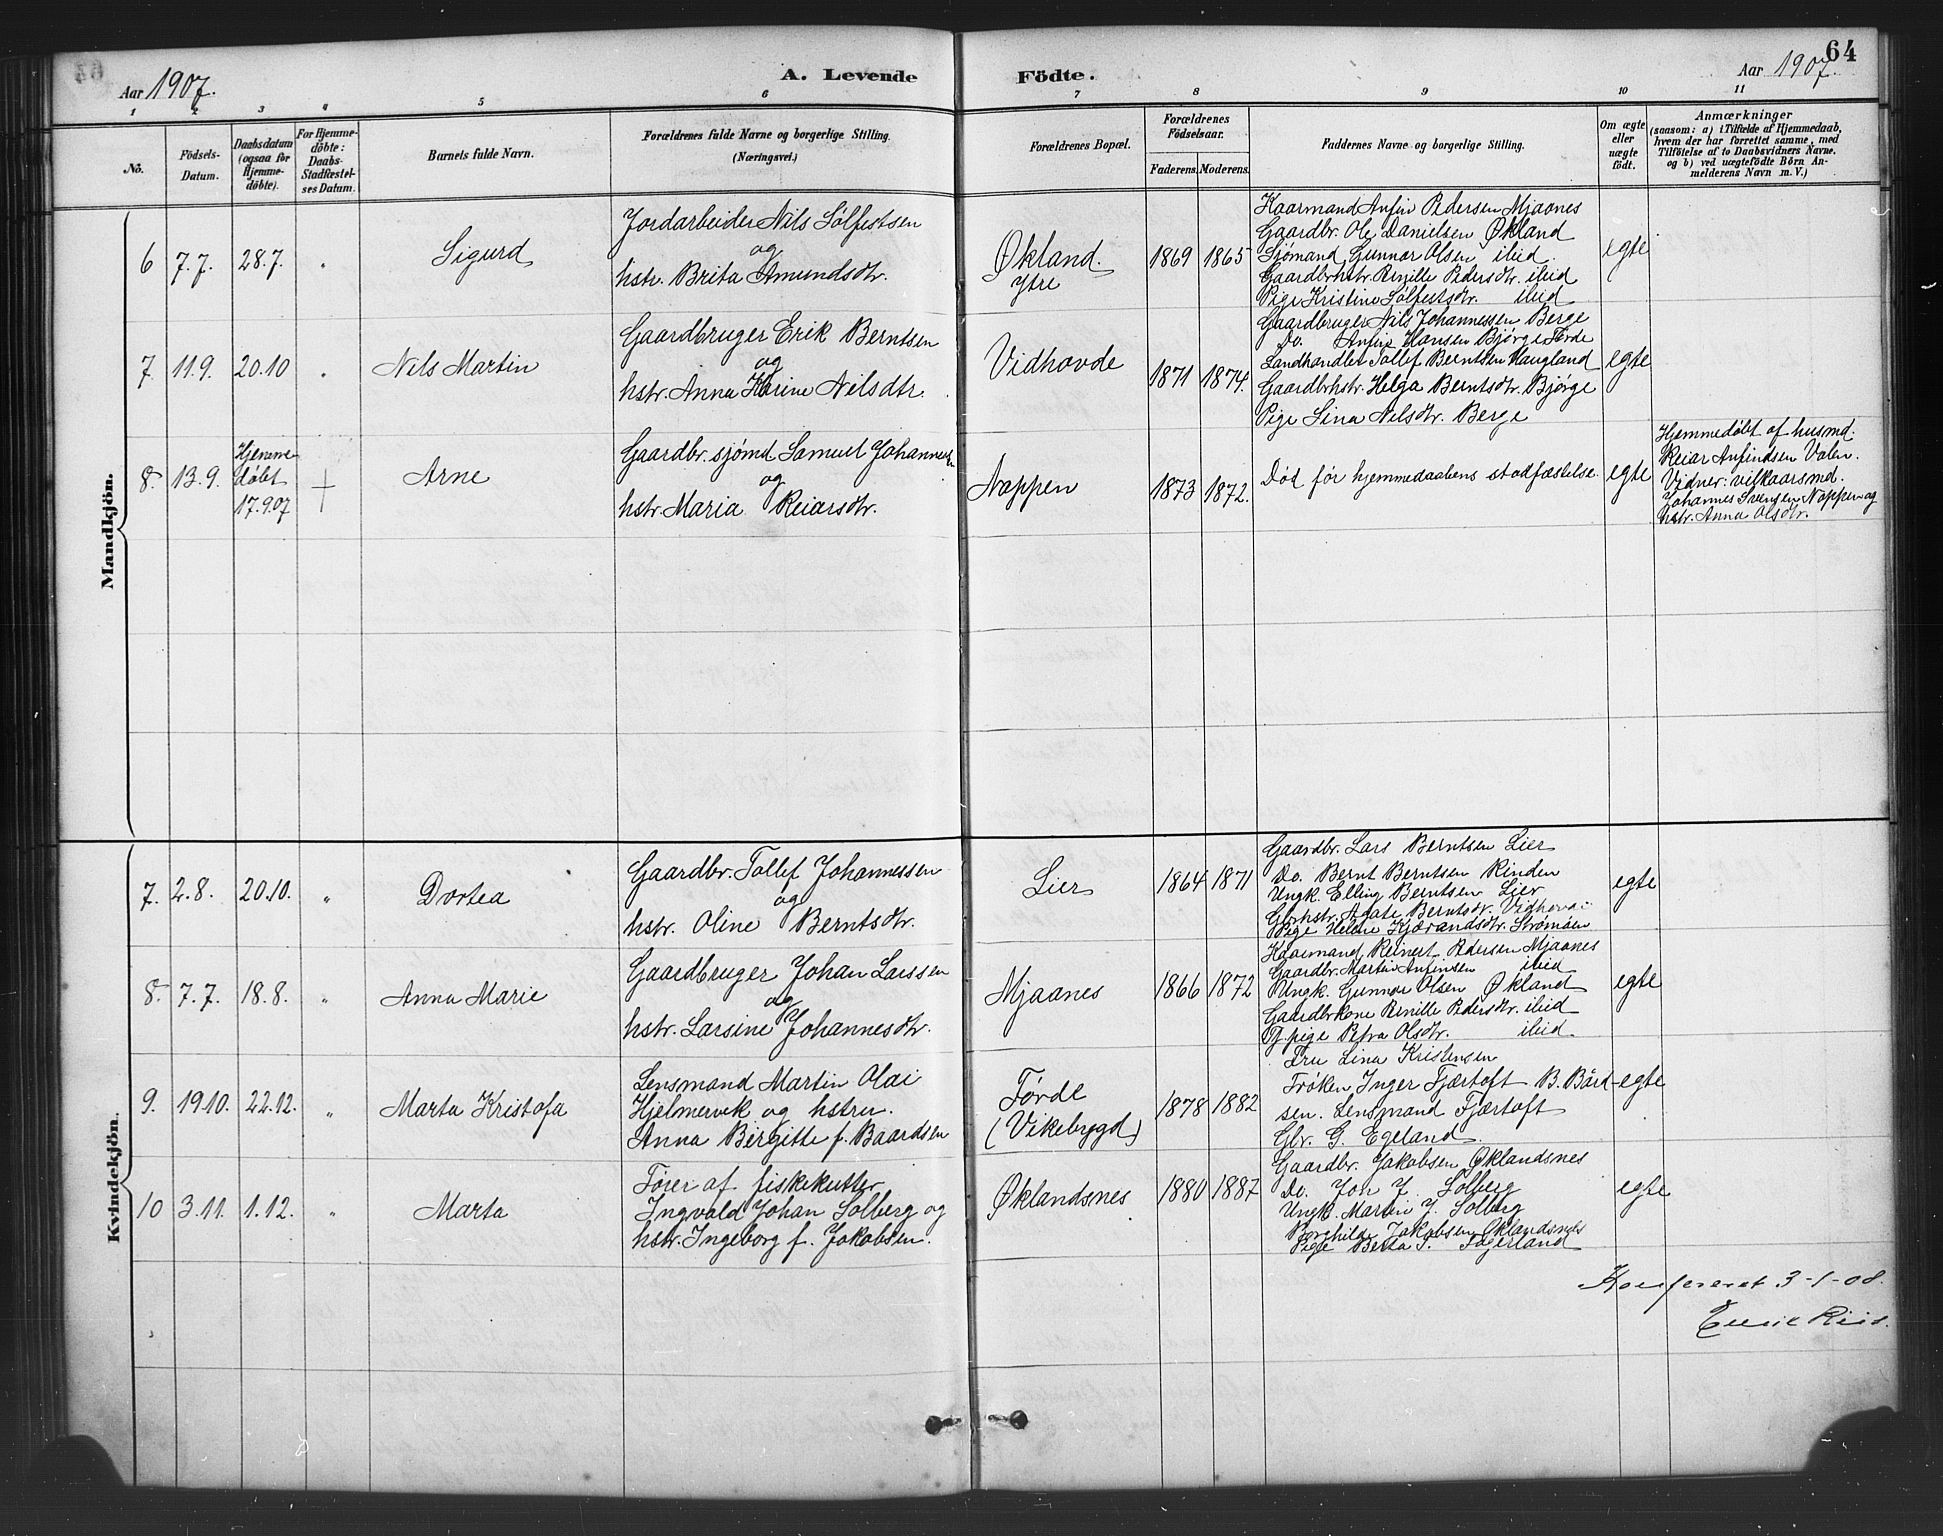 64
Aar 1907.
A. Levende Födte.
Aar 1907.
1 2 3 4 5 6 7 8 9 10 11
No.
Födsels-
Datum.
Daabsdatum
(ogsaa for
Hjemme-
döbte).
For Hjemme-
döbte:
Daabs-
Stadfæstel-
ses Datum.
Barnets fulde Navn.
Forældrenes fulde Navne og borgerlige Stilling.
(Næringsvei.)
Forældrenes Bopæl.
Forældrenes
Födselsaar.
Faderens. Moderens.
Faddernes Navne og borgerlige Stilling.
Om ægte
eller
uægte
födt.
Anmærkninger
(saasom: a) i Tilfælde af Hjemmedaab,
hvem der har forrettet samme, med
Tilföielse af to Daabsvidners Navne,
og b) ved uægtefödte Börn An-
melderens Navn m. V.)
Mandkjön.
6 7.7. 28.7. " Sigurd
Jordarbeider Nils Sølfestsen
og
hstr. Brita Amundsdtr.
Økland.
Ytre
1869 1865
Kaarmand Anfin Pedersen Mjaanes
Gaardbr. Ole Danielsen Økland
Sjømand Gunnar Olsen ibid.
Gaardbrhstr. Renille Pedersdtr. ibid
Pige Kristine Sølfestsdtr. ibid
egte
7 11.9. 20.10 " Nils Martin
Gaardbruger Erik Berntsen
og
hstr. Anna Karine Nilsdtr.
Vidhovde
1871 1874.
Gaardbruger Nils Johannessen Berge
Do. Anfin Hansen Bjørge Førde
Landhandler Tollef Berntsen Haugland
Gaardbrhstr. Helga Berntsdtr. Bjørge
Pige Lina Nilsdtr. Berge
egte
8. 13.9.
Hjemme
døbt
17.9.07
Arne
Gaardbr. sjømd Samuel Johannesen
og
hstr. Maria Reiarsdtr.
Nappen
1873 1872.
Død før hjemmedaabens stadfæstelse.
egte
Hjemmedøbt af husmd.
Reiar Anfindsen Valen.
Vidner: vilkaarsmd.
Johannes Svensen Nappen og
hstr. Anna Olsdtr.
Kvindekjön.
7. 2.8. 20.10. " Dortea
Gaardbr. Tollef Johannessen
og
hstr. Oline Berntsdtr.
Lier
1864 1871
Gaardbr. Lars Berntsen Lier
Do. Bernt Berntsen Rinden
Ungk. Elling Berntsen Lier
Gbrhstr. Agate Berntsdtr. Vidhovde
Pige Helene Kjærandsdtr. Strømøen
egte
8. 7.7. 18.8. " Anna Marie
Gaardbruger Johan Larssen
og
hstr. Larsine Johannesdtr.
Mjaanes
1866 1872
Kaarmand Reinert Pedersen Mjaanes
Gaardbr. Martin Anfinsen ibid
Ungk. Gunnar Olsen Økland
Gaardbrkone Renille Pedersdtr. ibid
Tj. pige Petra Olsdtr. ibid
egte
9. 19.10. 22.12. " Marta Kristofa
Lensmand Martin Olai
Hjelmervik og hstru.
Anna Birgitte f. Baardsen
Førde
(Vikebygd)
1878 1882
Fru Lina Kristensen
Frøken Inger Fjærtoft B. Bård-
sen. Lensmand Fjærtoft
Gbr. G. Egeland.
egte
10 3.11. 1.12. " Marta
Fører af fiskekutter
Ingvald Johan Solberg og
hstr. Ingeborg f. Jakobsen.
Øklandsnes
1880 1887
Gaardbr. Jakobsen Øklandsnes
Do. Jon J. Solberg
Ungk. Martin J. Solberg
Borghilde Jakobsen Øklandsnes
Pige Berta
egte
Konfereret 3-1-08.
Riis.